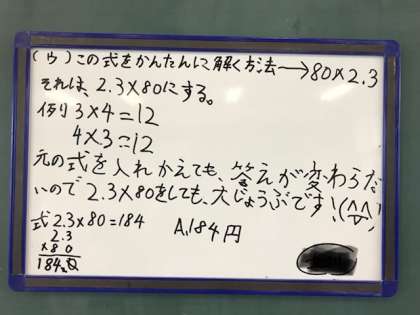 (ウ)この式をかんたんに解く方法→80×2.3
それは、2.3×80にする。
例り3×4=12
4×3=12
元の式を入れかえても、答えが変わらな
いので2.3×80をしても、大じょうぶです!(^^)
式2.3×80=184
2.3
×80
184.0
A.184円